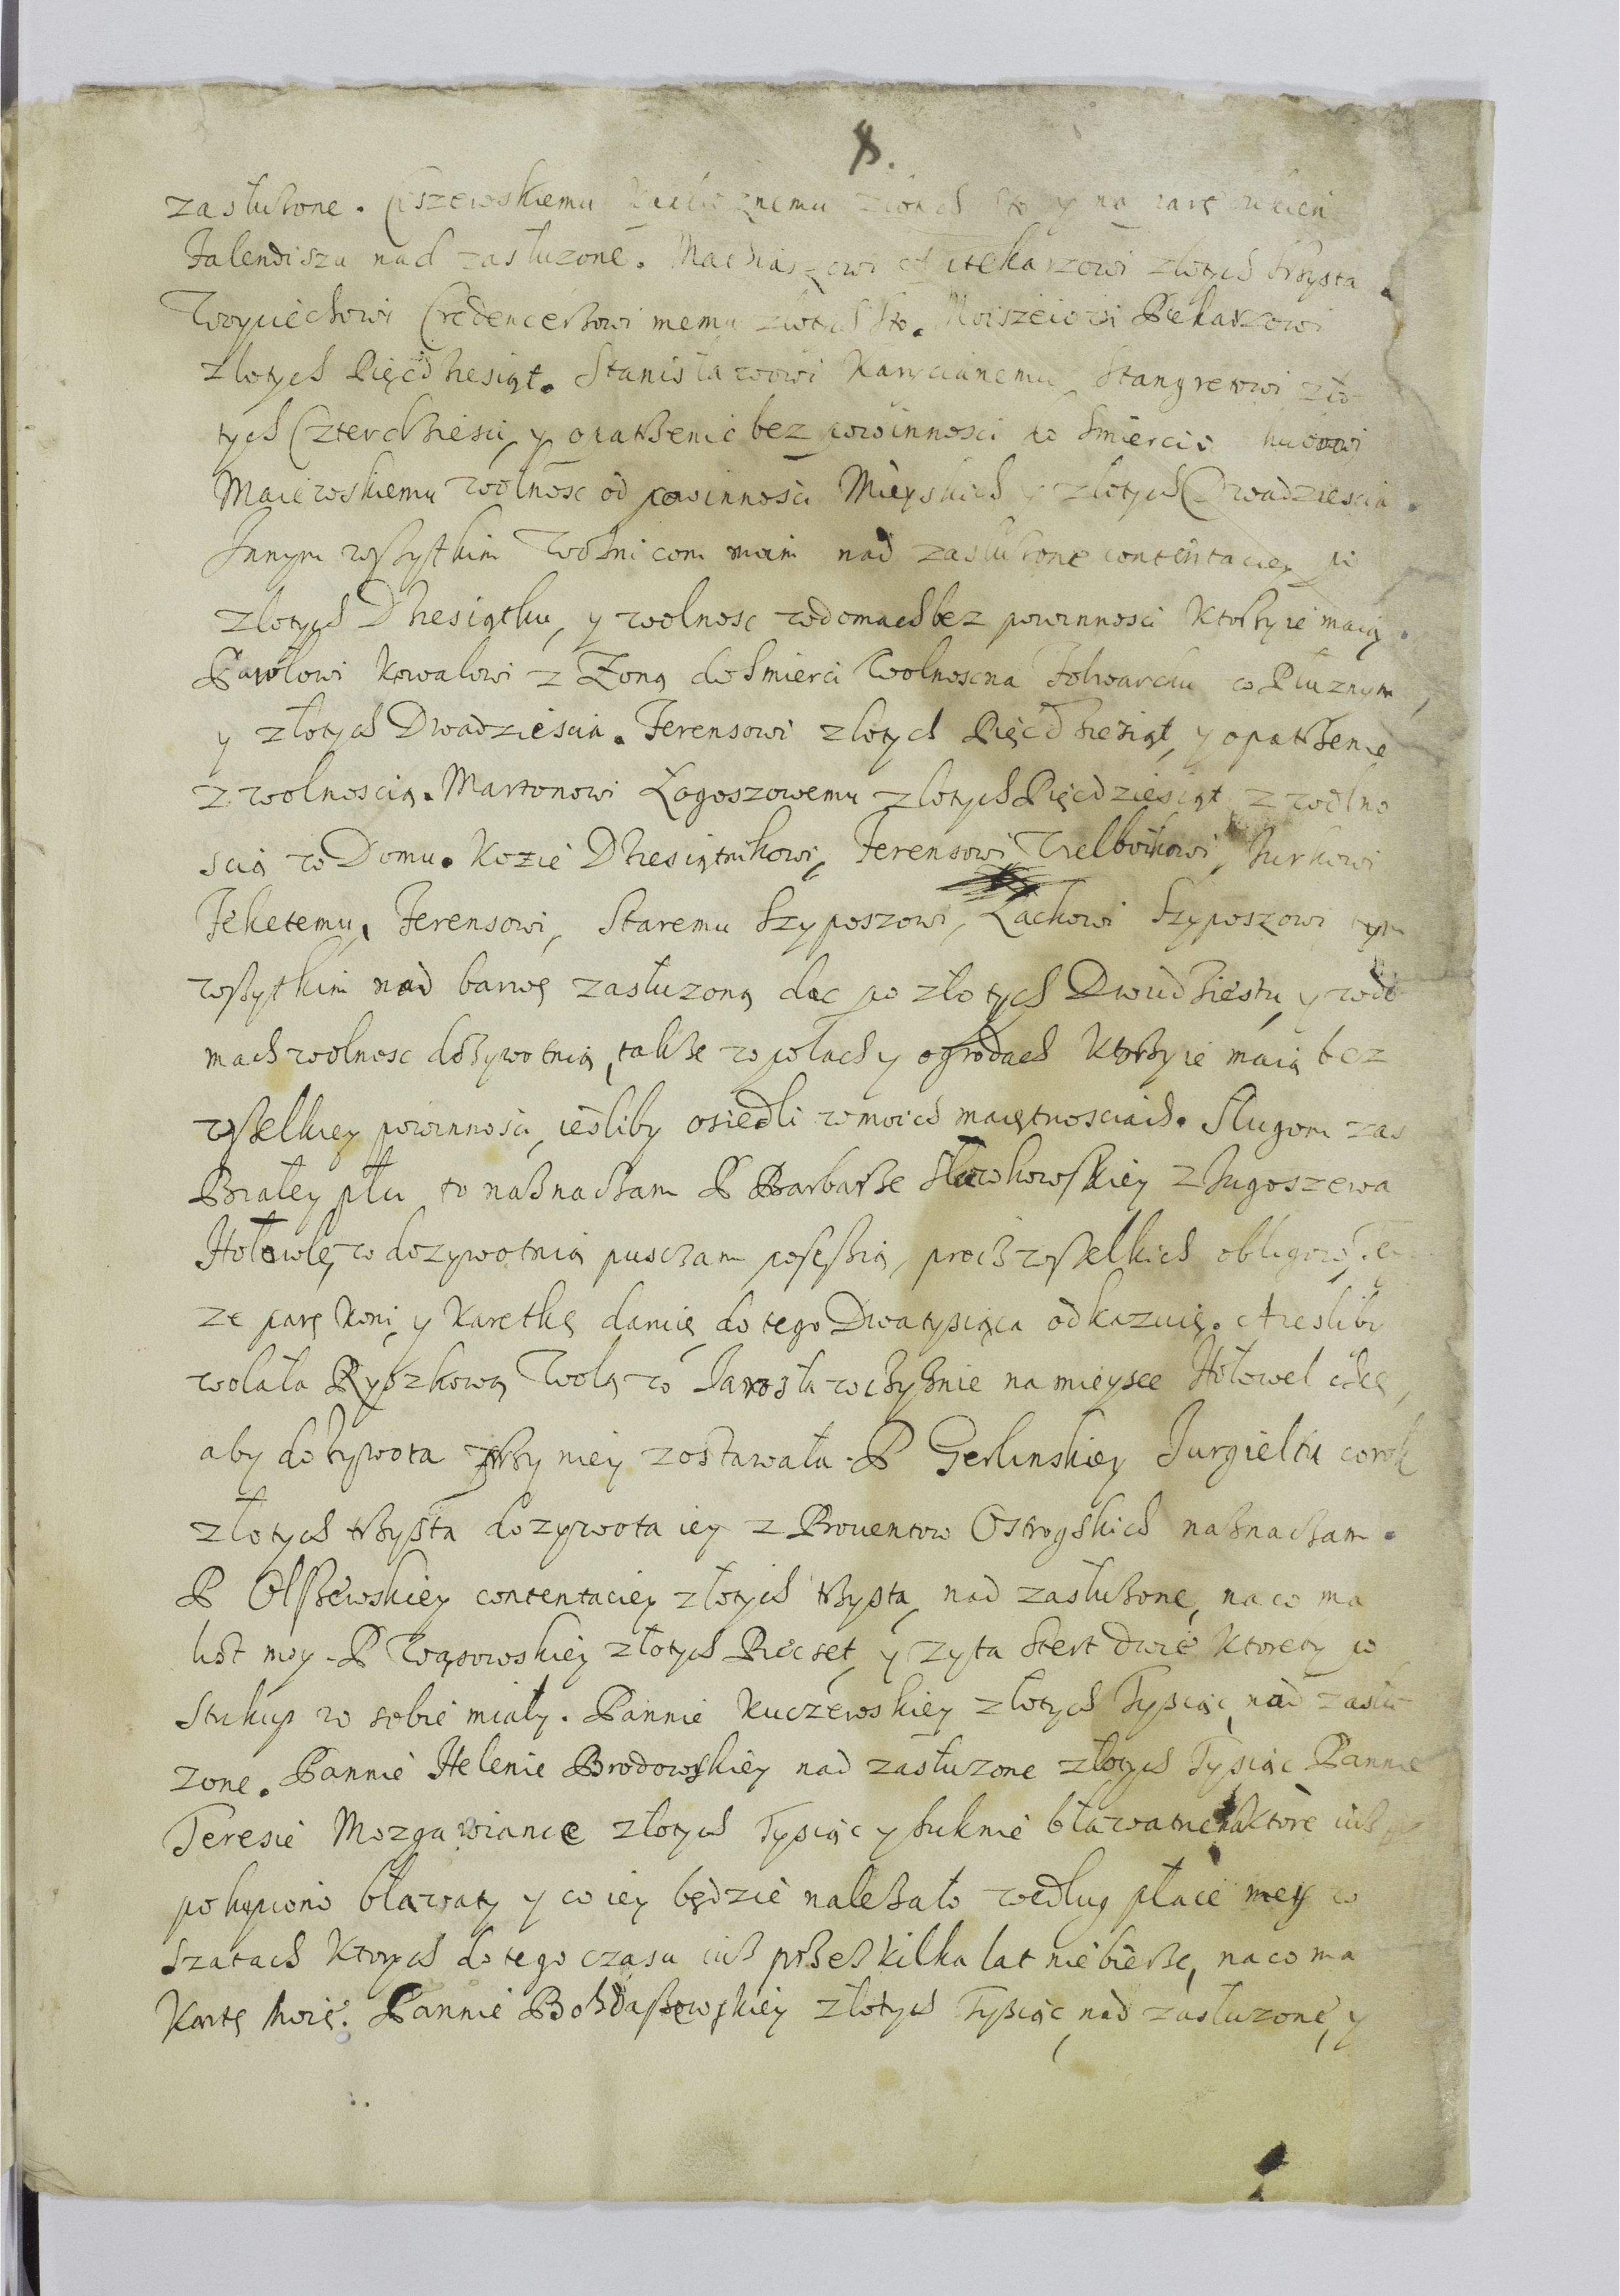 8.
zasłużone. Ciszewskiemu złotych sto y na parę sukien
Falendiszu nad zasłużone. Maciaszowi Aptekarzowi złotych trzysta
Woyciechowi Credencerzowi memu złotych sto. Moiszeiowi Piekarzowi
złotych Pięćdziesiąt. Stanisławowi Karycianemu Stangretowi zło
tych Czterdzieści, y opatrzenie bez powinnosci do Smierci.
Maiewskiemu wolnosc od powinnosci Mieyskich y złotych Dwadziescia.
Innym wszytkim Woźnicom moim nad zasłużone contentaciey po
złotych Dziesiątku, y wolnosc w domach bez powinnosci ktorzy ie maią.
Pawłowi Kowalowi z Zoną do Smierci Wolnosc na Folwarku w Płuznym,
y złotych Dwadziescia. Ferensowi złotych Pięćdziesiąt, y opatrzenie
z wolnoscią. Martonowi Łogoszowemu złotych Pięcdziesiąt z wolno
scią w Domu. Kozie Dziesiątnikowi, Ferensowi Jurkowi
Feketemu, Ferensowi, Staremu Szyposzowi, Łachowi Szyposzowi tym
wszytkim nad barwę zasłuzoną dac po złotych Dwudziestu, y w do
mach wolnosc dozywotnią, takze w polach y ogrodach ktorzy ie maią bez
wszelkiey powinnosci, iesliby osiedli w moich maiętnosciach. Sługom zas
Białey płci to naznaczam P Barbarze Sławkowskiey z Jugoszewa
Hołowlę w dozywotnią puszczam possessią, procz wszelkich obligow,
ze parę koni y karetkę daruię, do tego Dwa tysiąca odkazuię. A iesliby
wolała Ryszkową Wolą w Jarosławczyznie na mieysce Hołowel
aby do zywota przy niey zostawała. P Gerlinskiey Jurgieltu corok
złotych trzysta do zywota iey z Prouentow Ostrogskich naznaczam.
P Olszewskiey contentaciey złotych trzysta, nad zasłuzone, na co ma
list moy. P Wąsowskiey złotych Piecset, y zyta Stert dwie ktorety po
Stukup w sobie miały. Pannie Kuczewskiey złotych Tysiąc, nad zasłu
zone. Pannie Helenie Brodowskiey nad zasłuzone złotych Tysiąc Pannie
Teresie Mozgawiance złotych Tysiąc y suknie bławatne na ktore iuz
pokupiono bławaty y co iey będzie nalezało według płace mey w
szatach ktorych do tego czasu iuz przez kilka lat nie bierze, na co ma
Kartę moię. Pannie Bohdaszewskiey złotych Tysiąc, nad zasłuzone, y